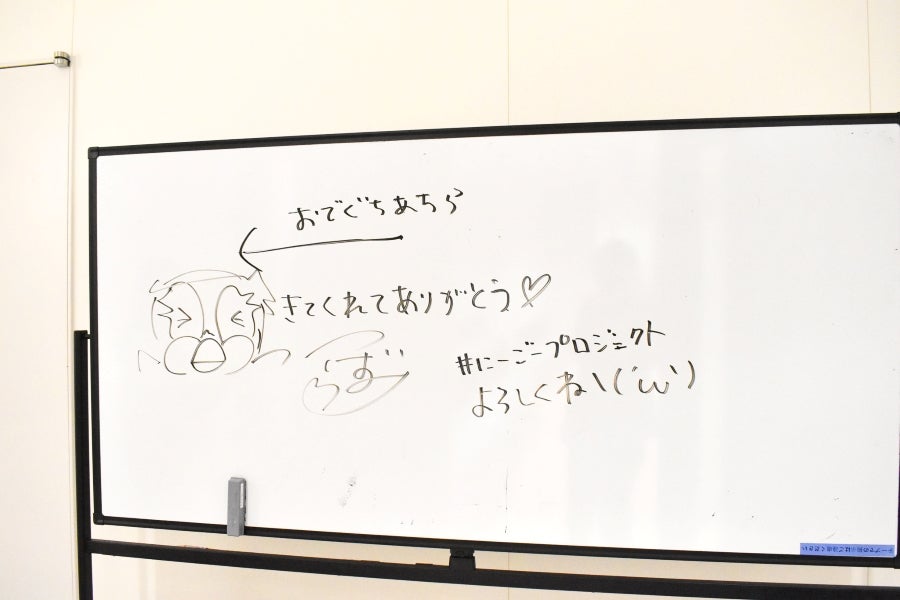 おでぐちあちら
きてくれてありがとう♡
らず
#にーごープロジェクト
よろしくね\(´ω`)